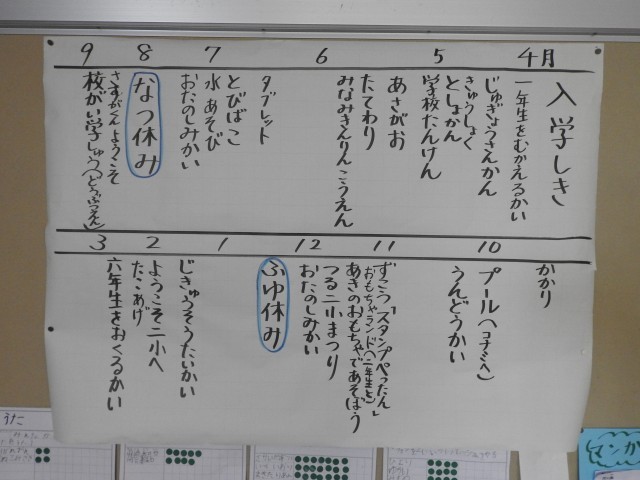 4月
入学しき
一年生をむかえるかい
じゅぎょうさんかん
きゅうしょく
5
としょかん
学校たんけん
6
あさがお
たてわり
みなみきんりんこうえん
タブレット
7
とびばこ
水あそび
おたのしみかい
8
なつ休み
9
さすがくんようこそ
校がい学しゅう(どうぶつえん)
かかり
10
プールへ(コナミへ)
うんどうかい
11
ずこう「スタンプぺったん」
おもちゃランドへ(二年生と)
あきのおもちゃであそぼう
12
つる二小まつり
おたのしみかい
ふゆ休み
1
じきゅうそうたいかい
2
ようこそ二小へ
たこあげ
3
六年生をおくるかい
うた
マンガ